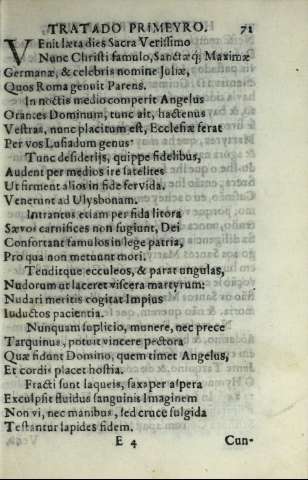 TRATADO PRIMEYRO. 71
VEnit læta dies Sacra Verissimo
Nunc Christi famulo, Sanctæq; Maximæ
Germanæ, & celebris nomine Juliæ,
Quos Roma genuit Parens.
In noctis medio comperit Angelus
Orantes Dominum, tunc ait, hactenus
Vestras, nunc placitum est, Ecclesiæ ferat
Per vos Lusiadum genus
Tunc desiderijs, quippe fidelibus,
Audent per medios ire satelites
Ut firment alios in fide fervida.
Venerunt ad Ulysbonam.
Intrantes etiam per fida litora
Sævos carnifices non fugiunt, Dei
Confortant famulos in lege patria,
Pro qua non metuunt mori.
Tenditque ecculeos, & parat ungulas,
Nudorum ut laceret viscera martyrum:
Nudari meritis cogitat Impius
Iuductos pacientia.
Nunquam suplicio, munere, nec prece
Tarquinus, potuit vincere pectora
Quæ fidunt Domino, quem timet Angelus,
Et cordis placet hostia.
Fracti sunt laqueis, saxa per aspera
Exculpsit fluidus sanguinis Imaginem
Non vi, nec manibus, sed cruce fulgida
Testantur lapides fidem.
E 4 Cun-